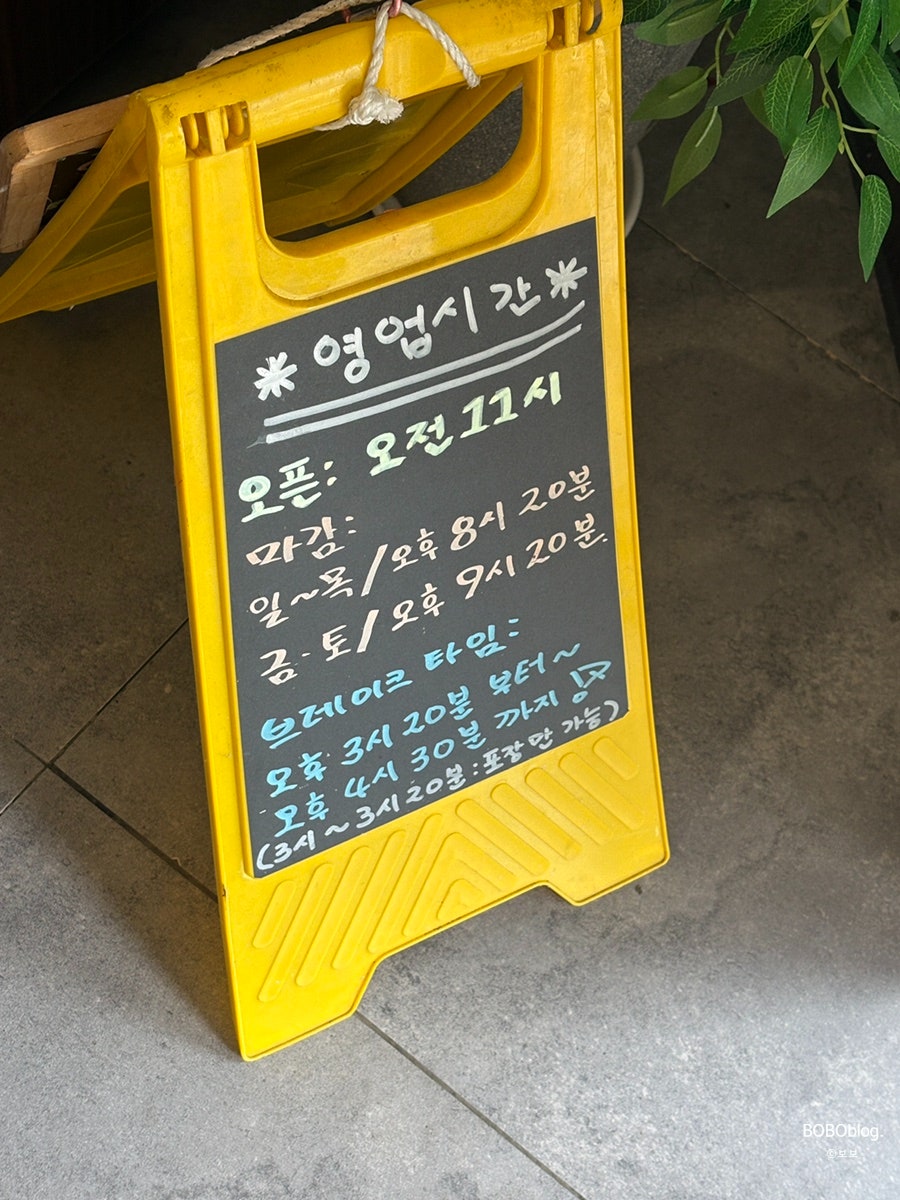 * 영업시간 *
오픈: 오전 11시
마감:
일~목/오후 8시 20분
금·토/오후 9시 20분
브레이크 타임:
오후 3시 20분 부터~
오후 4시 30분 까지
(3시~3시20분:포장만 가능)
BOBOblog.